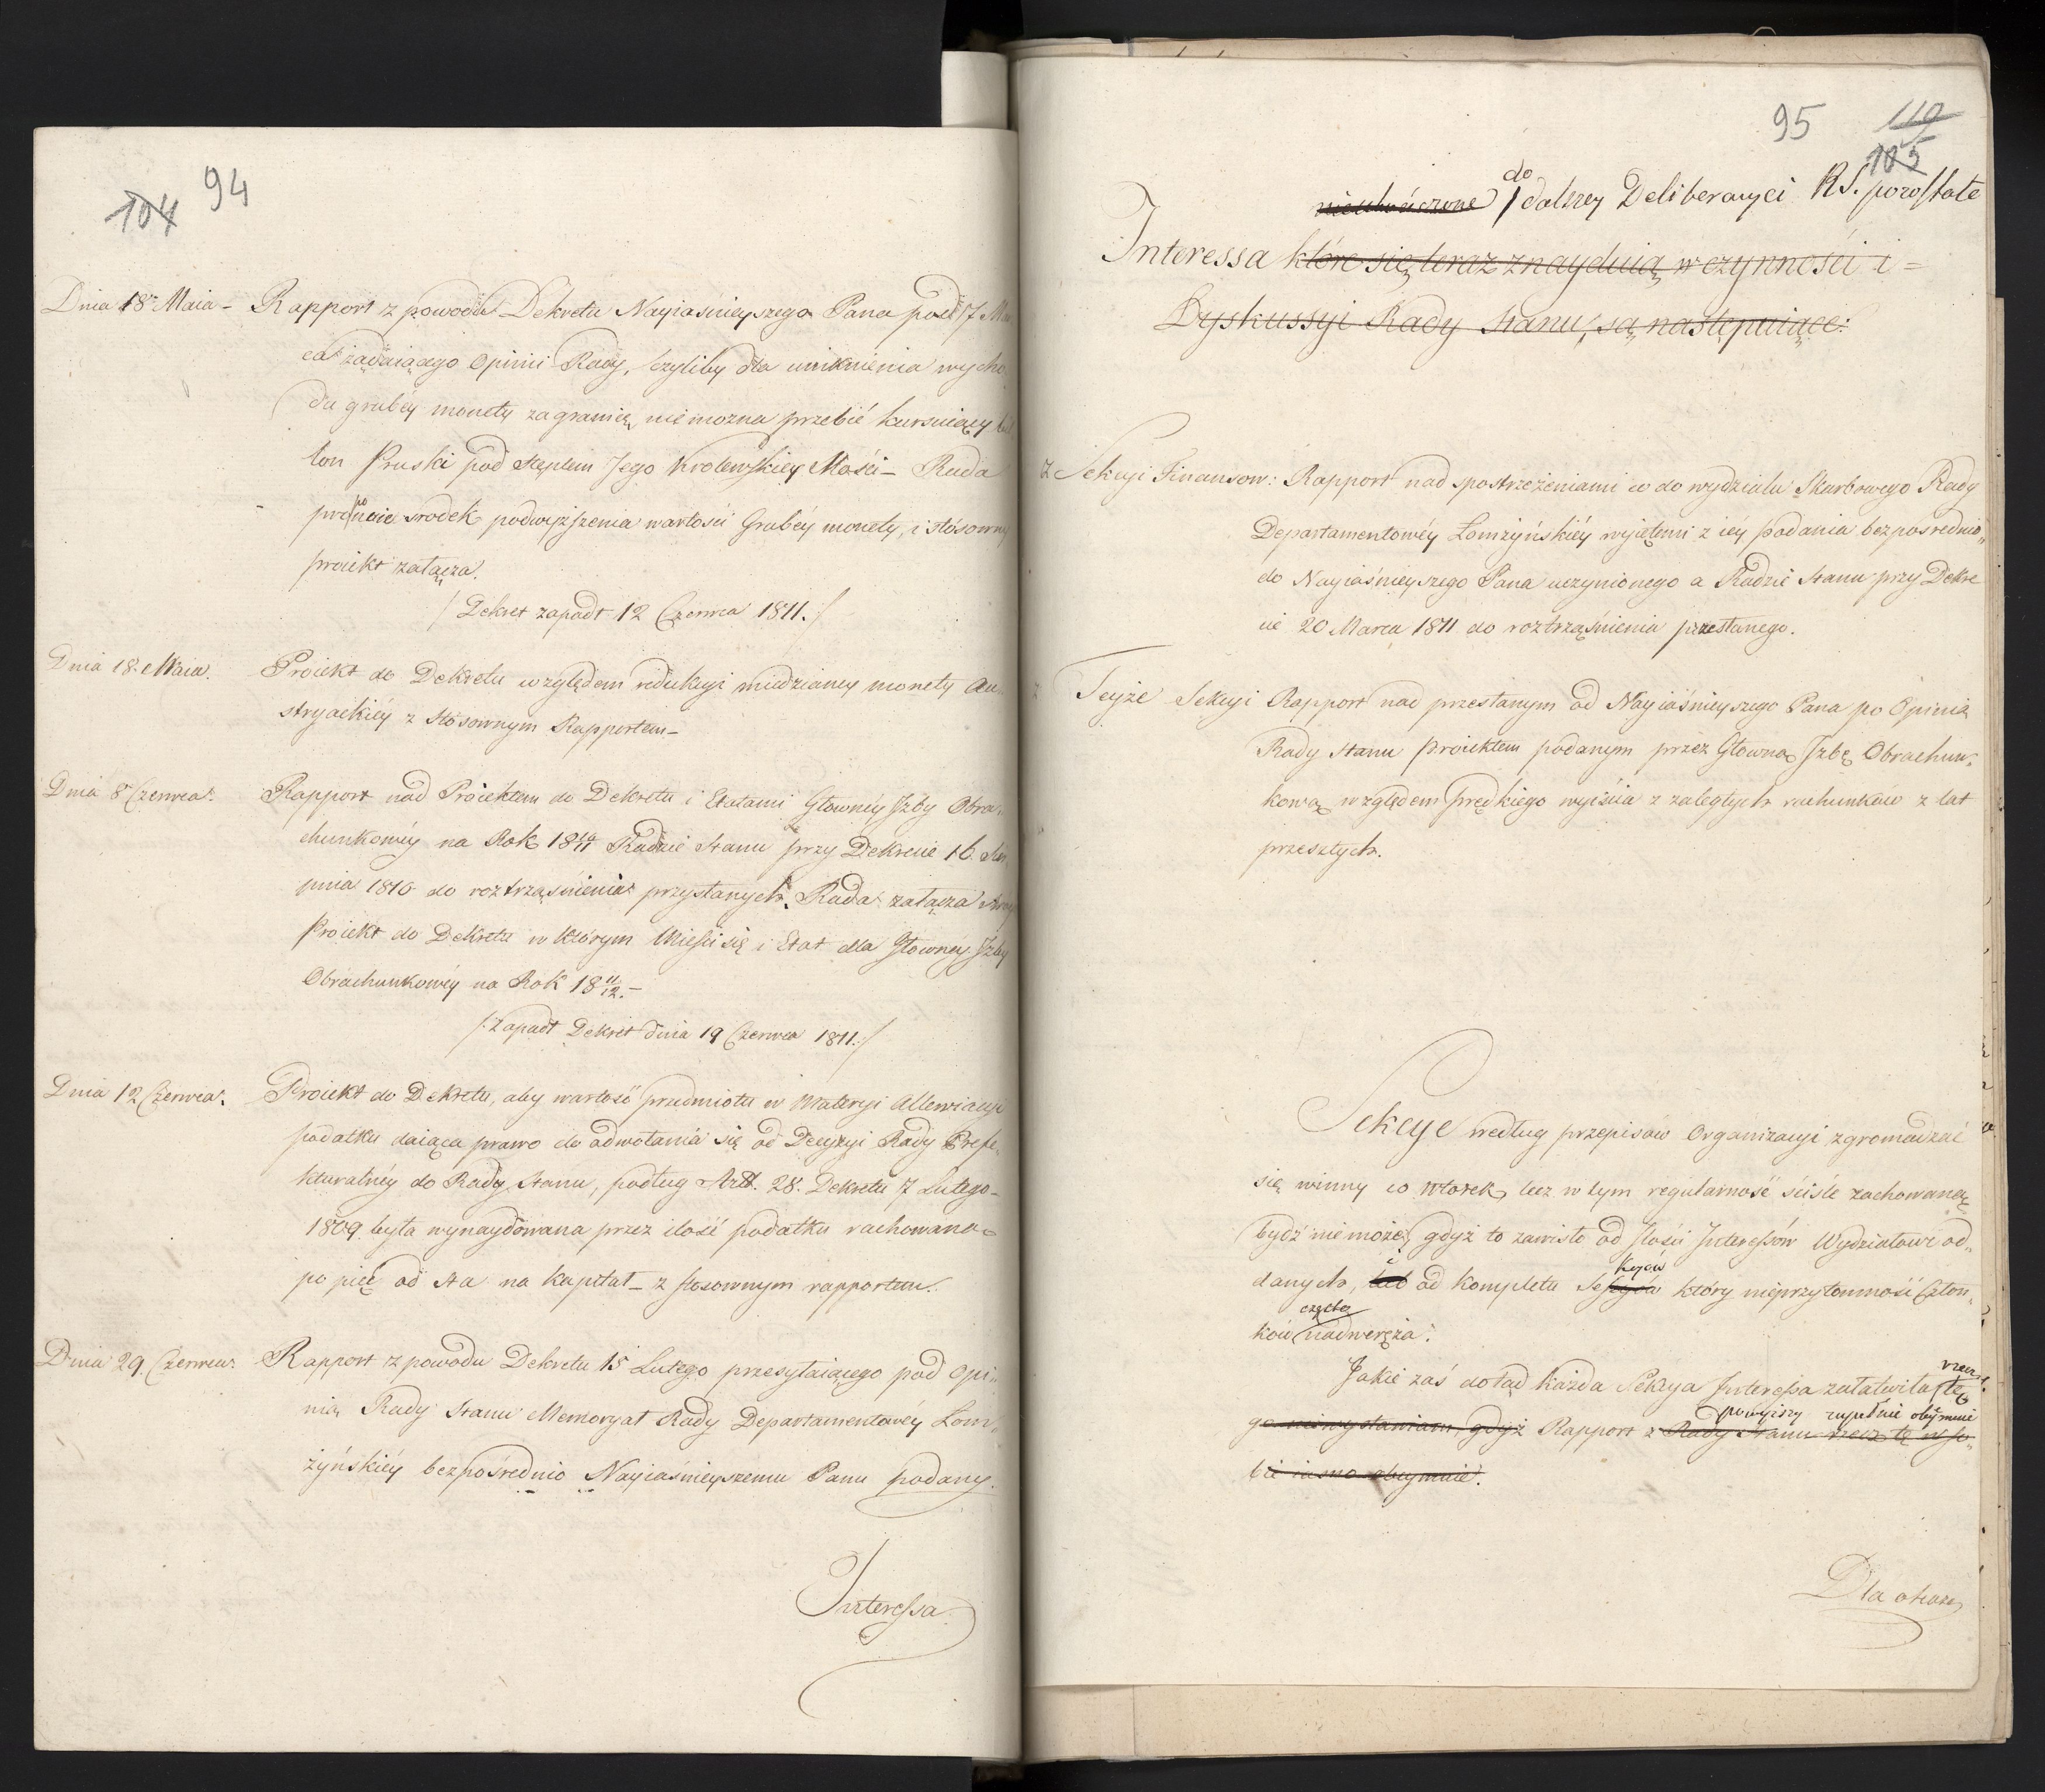 94
104
Dnia 18 Maia - Rapport z powodu Dekretu Nayiaśnieyszego Pana pod 17 Ma
ca żądaiącego Opinii Rady, czyliby dla uniknienia wycho
du grubéy monety zagranicę, nie można przebić kursuiący bil
lon Pruski pod stęplem Jego Krolewskiey Mości - Rada
proponuie srodek podwyższenia wartości Grubéy monety, i stosowny
proiekt załącza.
/ Dekret zapadł 12 Czerwca 1811. /
Dnia 18. Maia. Proiekt do Dekretu względem redukcyi miedzianey monety Au=
stryackiéy z stosownym Rapportem -
Dnia 8 Czerwca. Rapport nad Proiektem do Dekretu i Etatami Głownéy Jzby Obra=
chunkowéy na Rok 18 10/11 Radzie Stanu przy Dekrecie 16. Sier
pnia 1810 do roztrząśnienia przysłanych. Rada załącza
Proiekt do Dekretu w którym Mieści się i Etat dla Głowney Jzby
Obrachunkowéy na Rok 18 11/12. -
/: Zapadł Dekret dnia 19 Czerwca 1811. :/
Dnia 12 Czerwca. Proiekt do Dekretu, aby wartość przedmiotu w Materyi Allewiacyi
podatku daiąca prawo do odwołania się od Decyzyi Rady Prefe=
kturalnéy do Rady Stanu, podług Artt. 28. Dekretu 7 Lutego -
1809 była wynaydowana przez ilość podatku rachowana=
po pięć od sta na kapitał - z stosownym rapportem.
Dnia 29 Czerwca Rapport z powodu Dekretu 15 Lutego przesyłaiącego pod Opi=
nią Rady Stanu Memoryał Rady Departamentowéy Łom=
żyńskiéy bezpośrednio Nayiaśnieyszemu Panu podany.
Interessa
95
119
105
nieukończone do dalszey Deliberacyi RS. pozostałe
Interessa które się teraz znayduią w czynności i =
Dyskussyi Rady Stanu, są następuiące:
z Sekcyi Finansow: Rapport nad spostrzeżeniami co do wydziału Skarbowego Rady
Departamentowéy Łomżyńskiéy wyiętemi z iéy podania bezpośrednio=
do Nayiaśnieyszego Pana uczynionego a Radzie Stanu przy Dekre
cie 20 Marca 1811 do roztrząśnienia przesłanego.
z Teyże Sekcyi Rapport nad przesłanym od Nayiaśnieyszego Pana po Opinią
Rady Stanu Proiektem podanym przez Głowną Jzbę Obrachun=
kową względem prędkiego wyiścia z zaległych rachunków z lat
przeszłych.
Sekcye według przepisów Organizacyi zgromadzać
się winny co wtorek, lecz w tym regularność ściśle zachowaną
bydź nie może, gdyż to zawisło od ilości Interessów Wydziałowi od=
danych, lub i od kompletu Sessyów kcyów który nieprzytomność Człon=
ków często nadweręża.
Jakie zaś dotąd każda Sekcya Interessa załatwiła, rzecz tę
go niewystawiam, gdyż Rapport z Rady Stanu rzecz tę w so= powyższy zupełnie obeymuie
bie iasno obeymuie.
Dla okaza